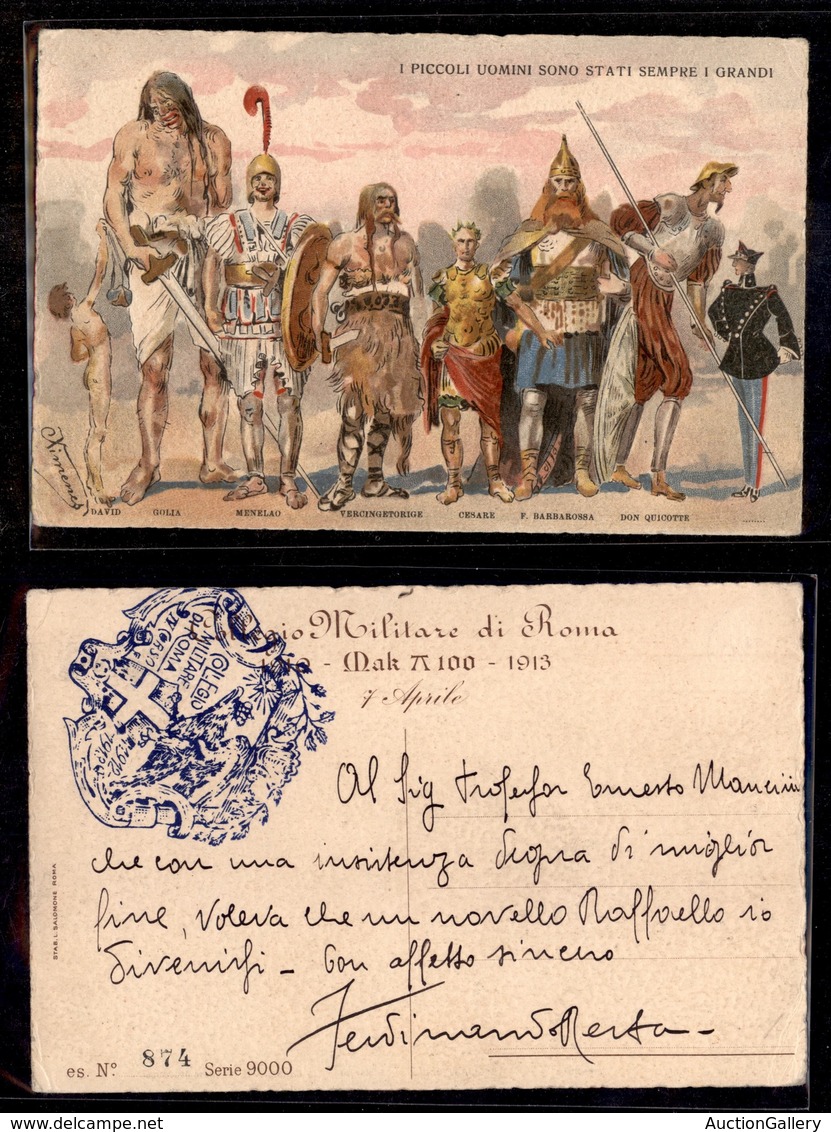 I PICCOLI UOMINI SONO STATI SEMPRE I GRANDI
Ximenes
DAVID GOLIA MENELAO VERCINGETORIGE CESARE F. BARBAROSSA DON QUICOTTE ........
Collegio Militare di Roma
- Mak π 100 - 1913
7 Aprile
COLLEGIO
MILITARE
DI ROMA
IV CORSO
1912
1913
Al Sig Professor Ernesto Mancini
che con una insistenza degna di miglior
fine, voleva che un novello Raffaello io
divenissi - Con affetto sincero
Ferdinando Resta -
STAB. L. SALOMONE ROMA
es. N° 874 Serie 9000
AuctionGallery